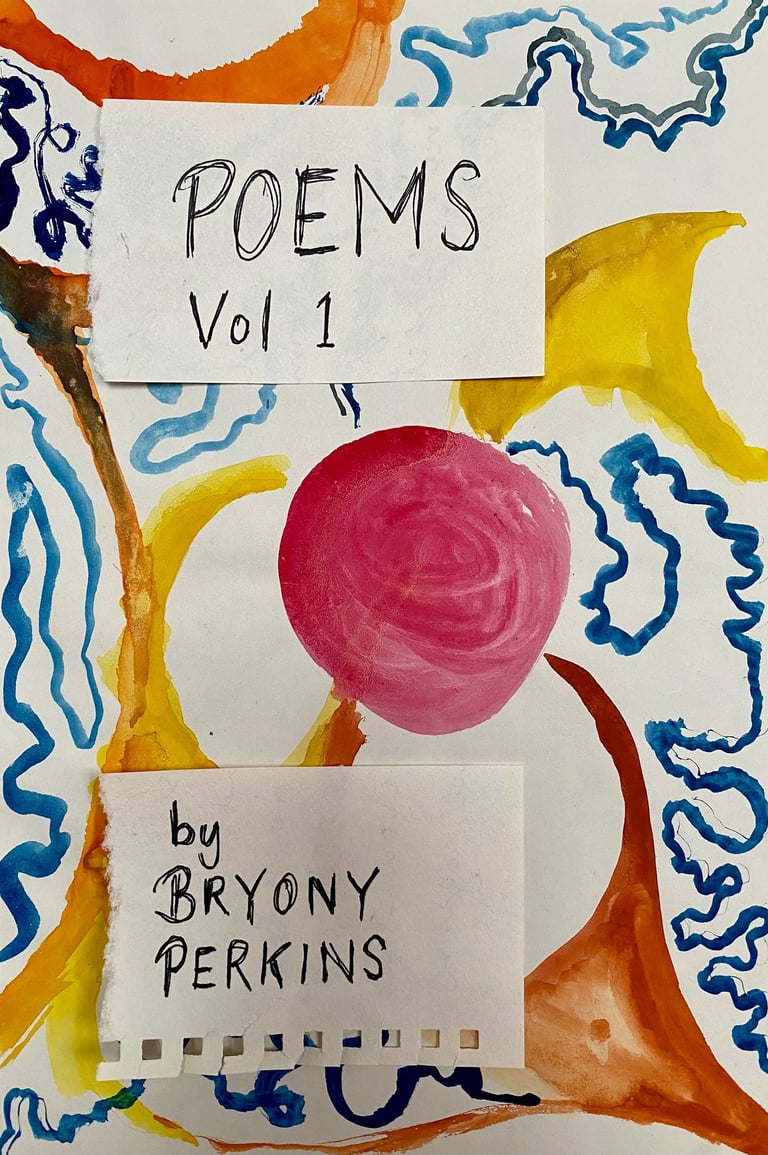 POEMS
Vol 1
by
BRYONY
PERKINS